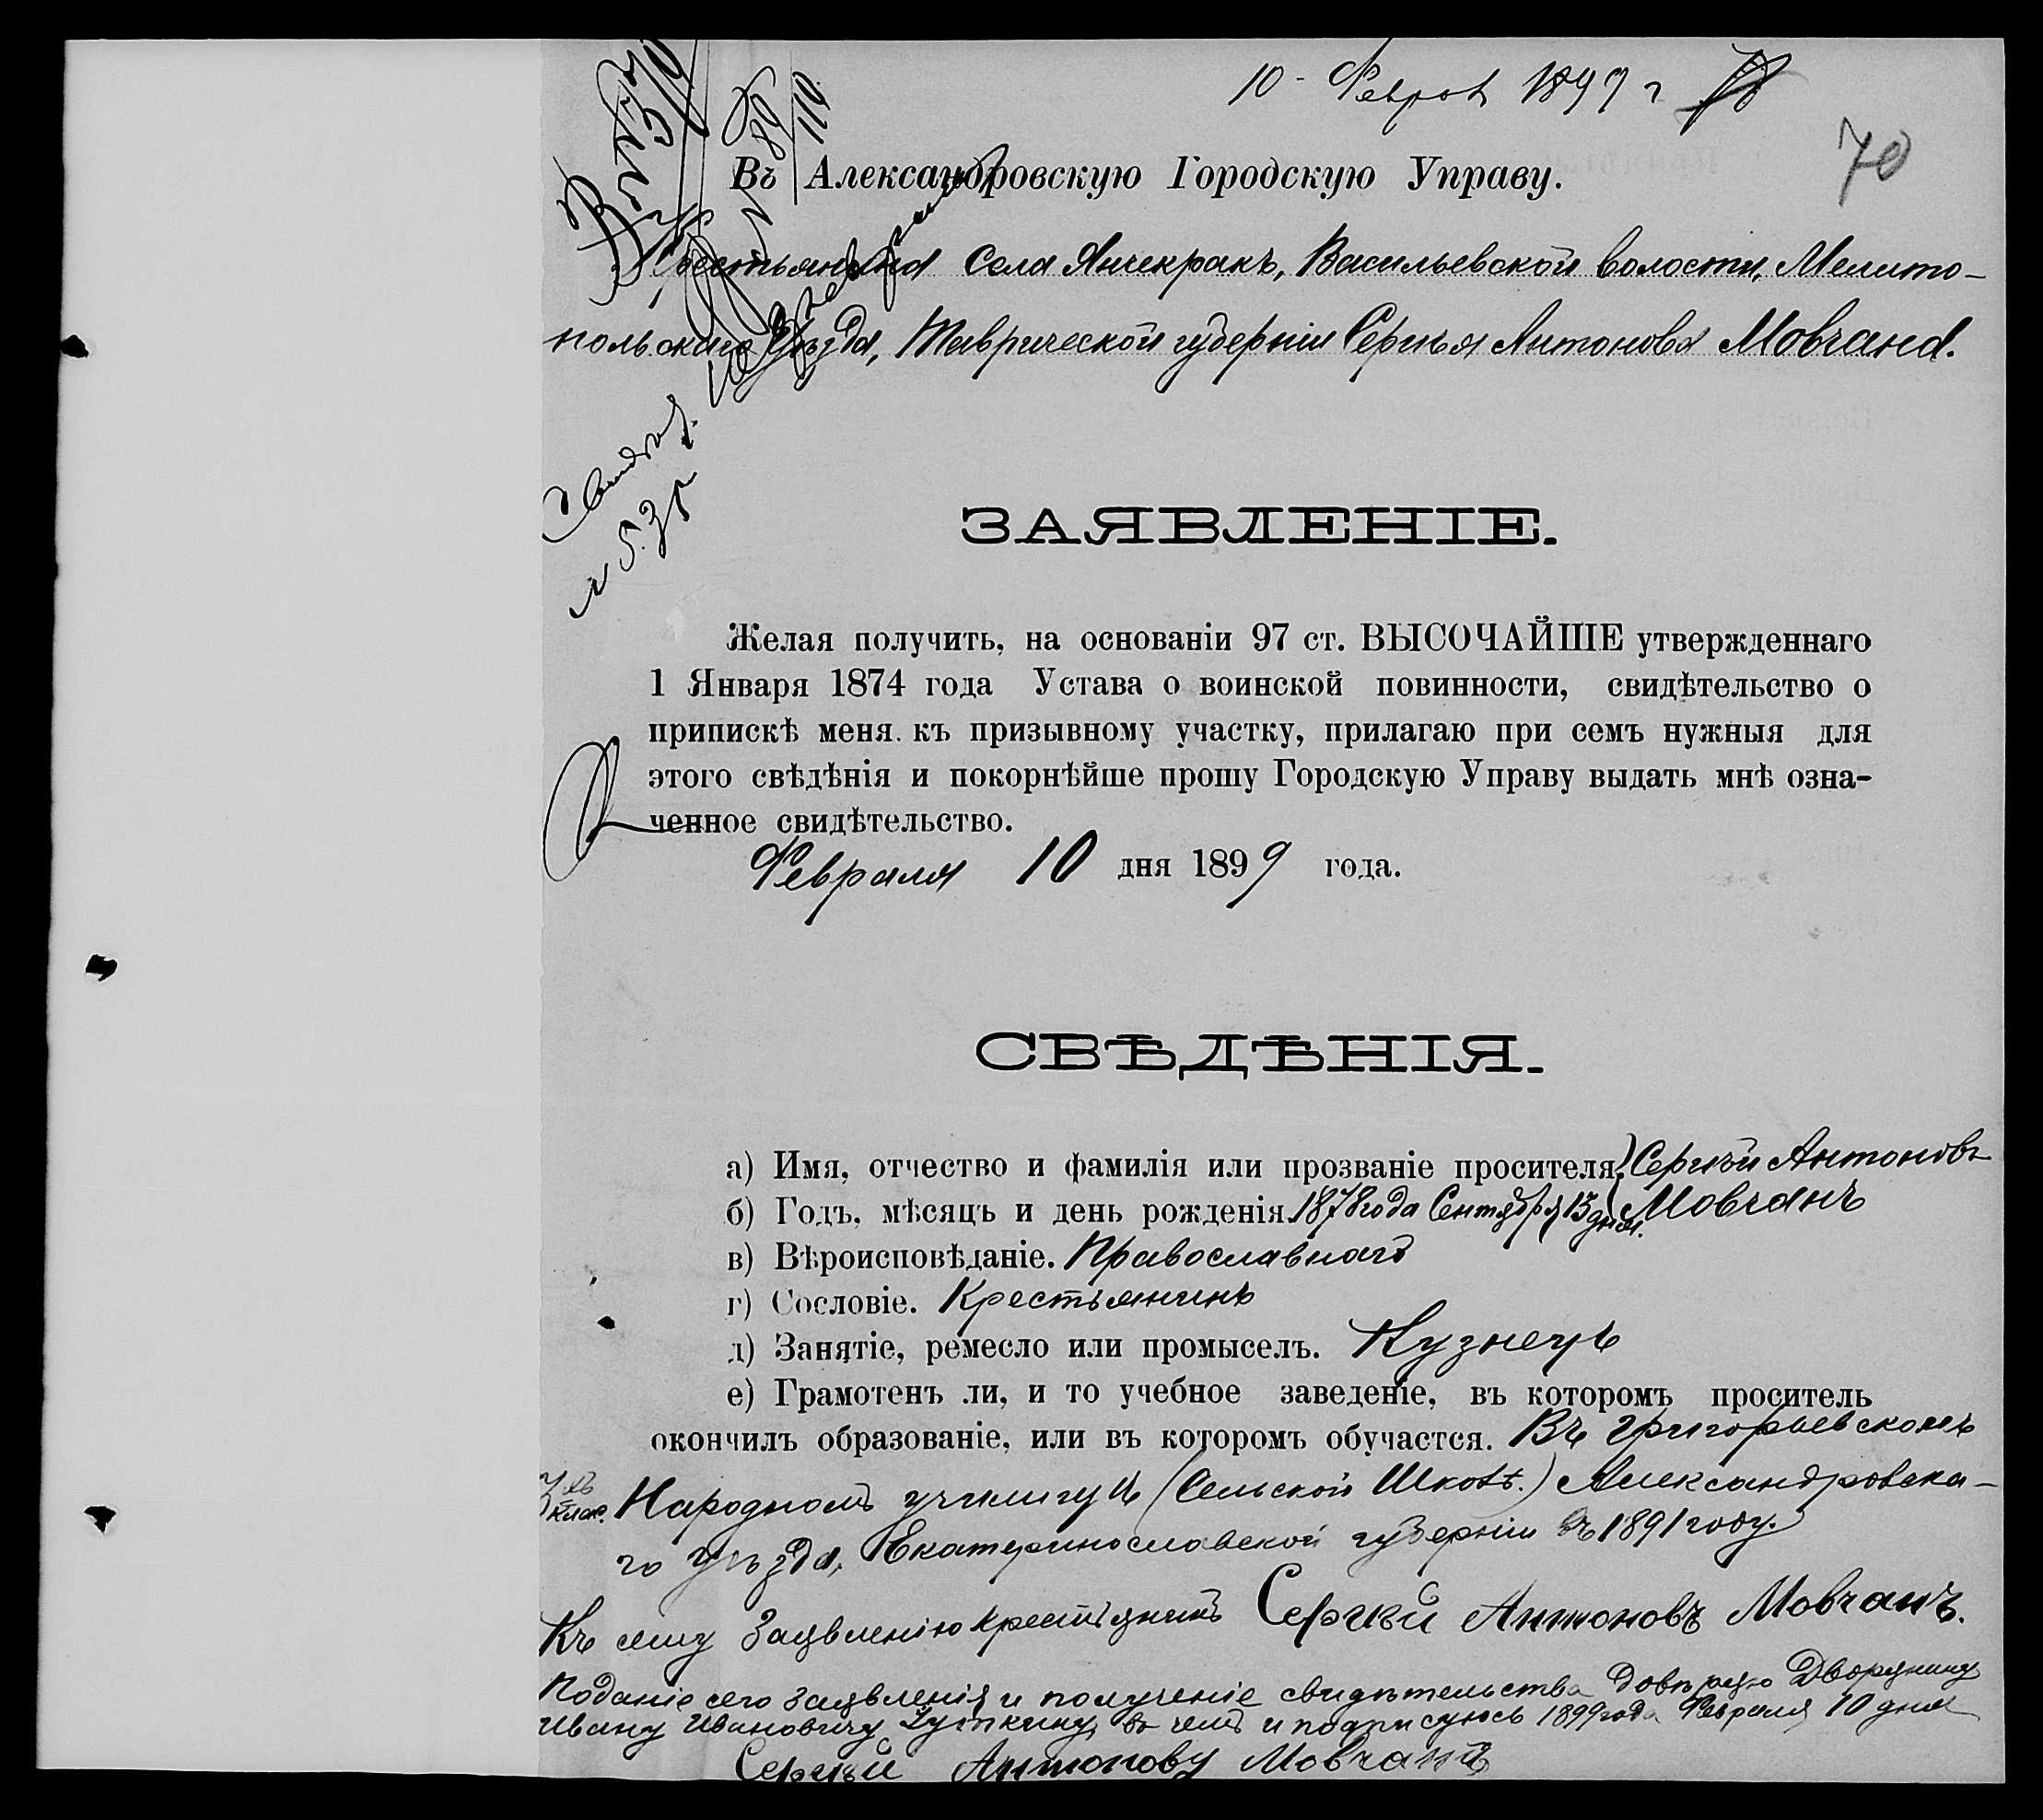 10 Феврал 1899 г
70
№ 89
110
Въ Александровскую Городскую Управу.
Крестьянина Села Янчекракъ, Васильевской волости, Мелито-
польскаго Уѣзда, Таврической губерніи Сергѣя Антонова Мовчана.
ЗАЯВЛЕНІЕ.
Желая получить, на основаніи 97 ст. ВЫСОЧАЙШЕ утвержденнаго
1 Января 1874 года Устава о воинской повинности, свидѣтельство о
припискѣ меня къ призывному участку, прилагаю при семъ нужныя для
этого свѣдѣнія и покорнѣйше прошу Городскую Управу выдать мнѣ озна-
ченное свидѣтельство.
Февраля 10 дня 1899 года.
СВѢДѢНІЯ.
а) Имя, отчество и фамилія или прозваніе просителя. Сергѣй Антоновъ
Мовчанъ
б) Годъ, мѣсяцъ и день рожденія. 1878 года Сентября 13 дня.
в) Вѣроисповѣданіе. Православнаго
г) Сословіе. Крестьянинъ
д) Занятіе, ремесло или промыселъ. Кузнецъ
е) Грамотенъ ли, и то учебное заведеніе, въ которомъ проситель
окончилъ образованіе, или въ которомъ обучается. Въ Григорьевскомъ
Народномъ училищѣ (Сельской Школѣ.) Александровска-
го Уѣзда, Екатеринославской губерніи въ 1891 году.
Къ сему Заявленію крестьянинъ Сергѣй Антоновъ Мовчанъ.
Поданіе сего заявленія и полученіе свидѣтельства довѣряю Дворянину
Ивану Ивановичу въ чемъ и подписуюсь 1899 года Февраля 10 дня
Сергѣй Антонову Мовчанъ